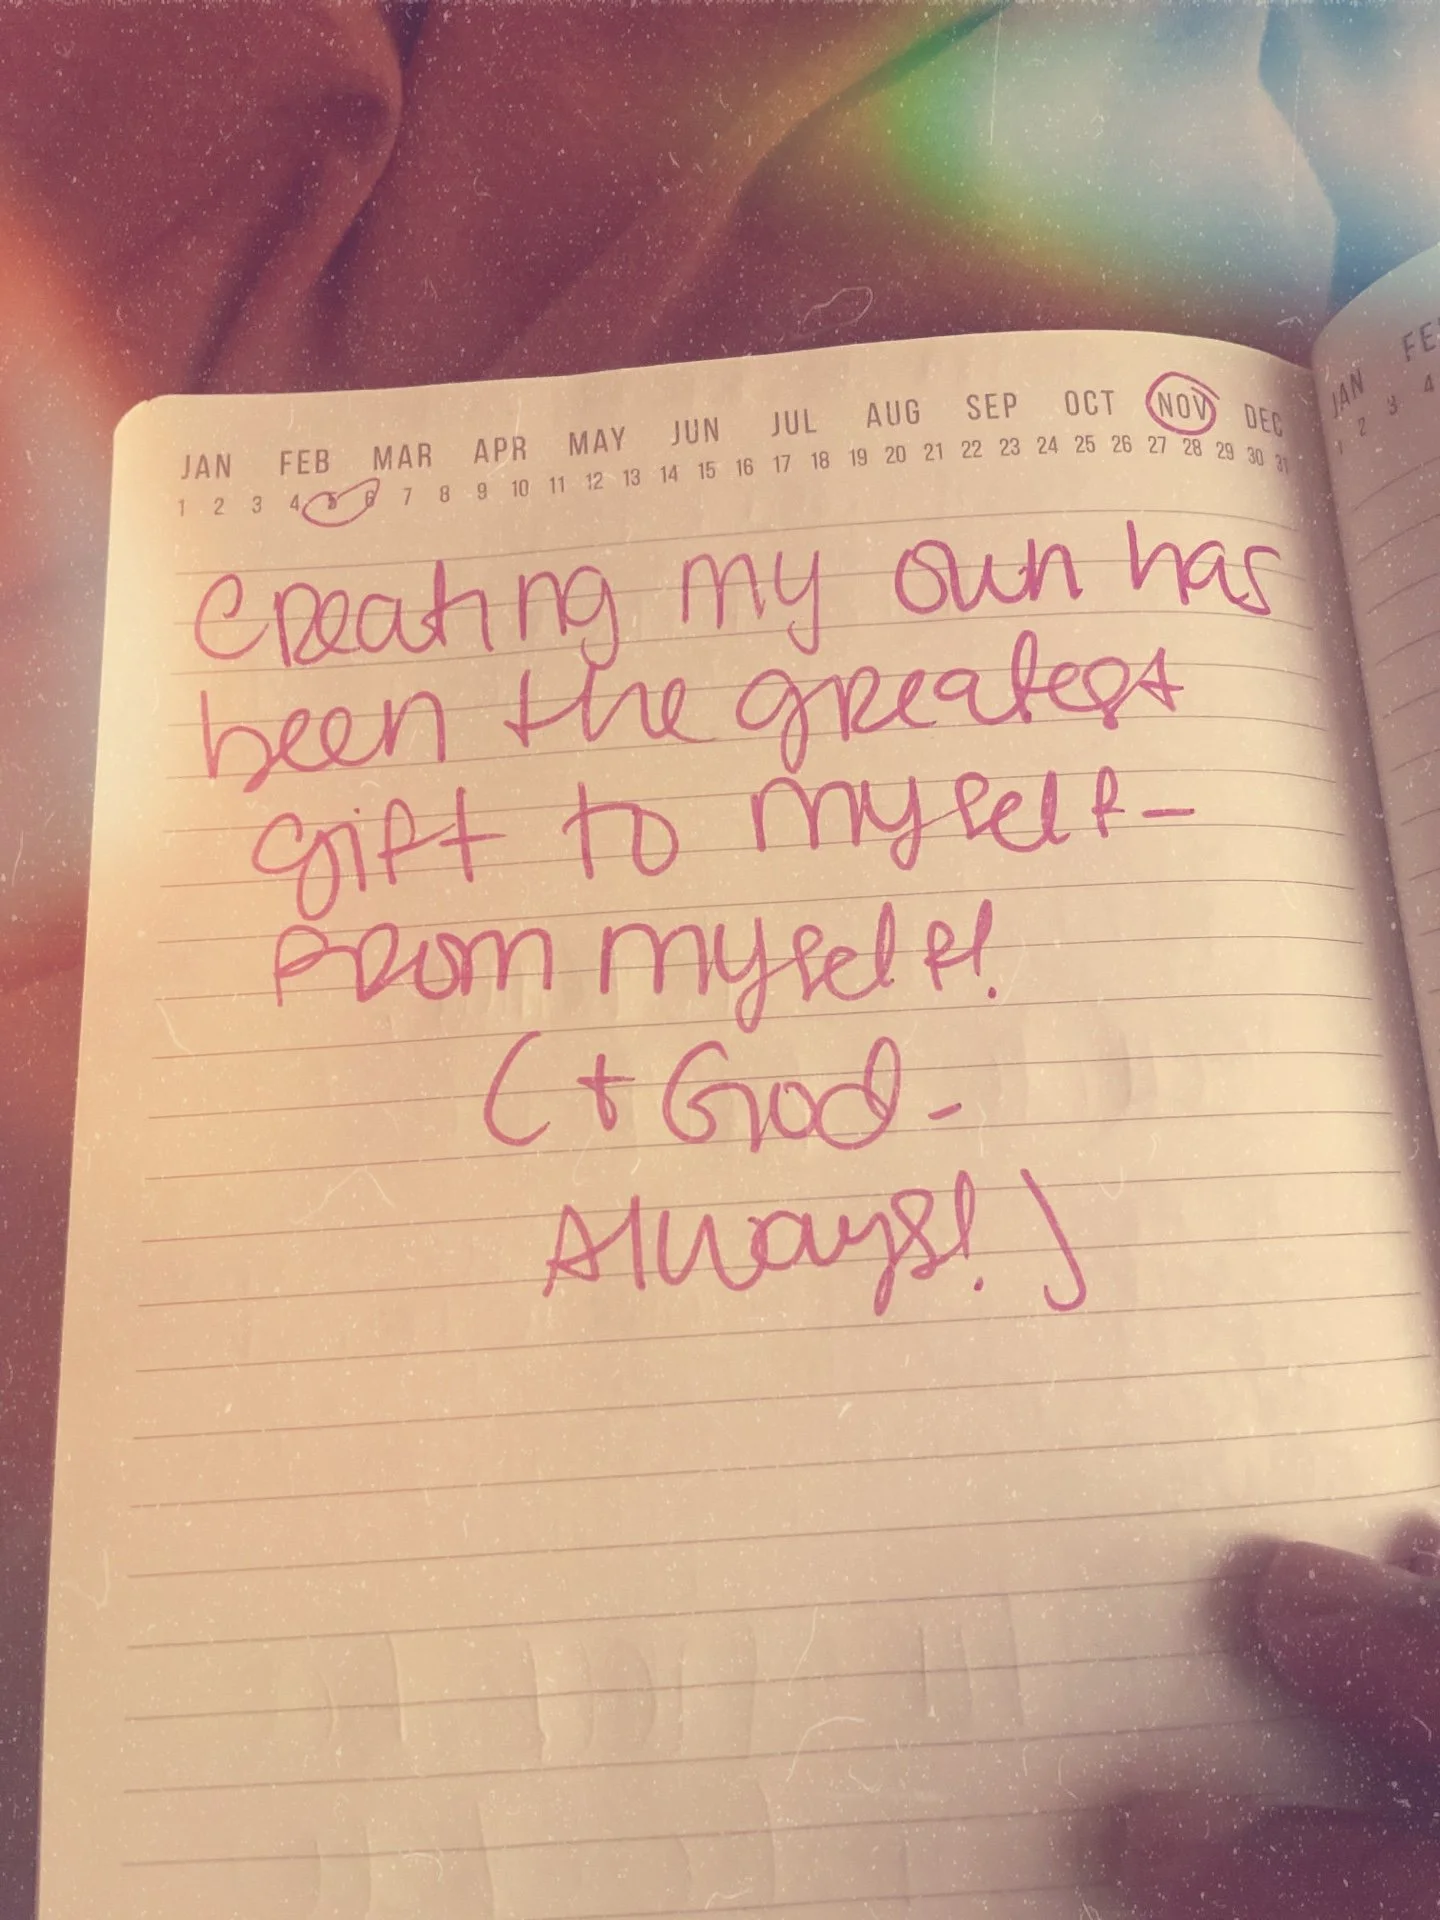 JAN FEB MAR APR MAY JUN JUL AUG SEP OCT NOV DEC
1 2 3 4 5 6 7 8 9 10 11 12 13 14 15 16 17 18 19 20 21 22 23 24 25 26 27 28 29 30 31
Creating my own has
been the greatest
gift to myself-
From myself!
(+ God-
Always!)
JAN FE
1 2 3 4